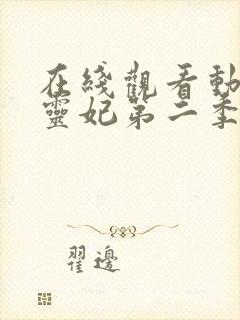 在綫觀看動
靈妃第二季
翟邊